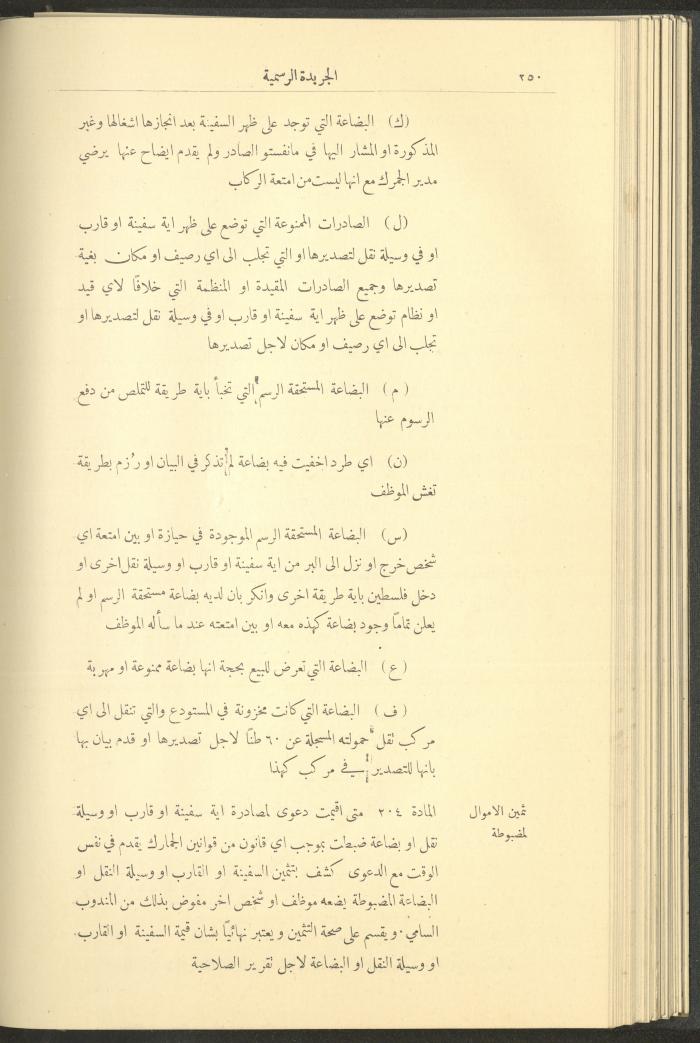 ٢٥٠ الجريدة الرسمية
(ك) البضاعة التي توجد على ظهر السفينة بعد انجازها اشغالها وغير
المذكورة او المشار اليها في مانفستو الصادر ولم يقدم ايضاح عنها يرضي
مدير الجمرك مع انها ليست من امتعة الركاب
(ل) الصادرات الممنوعة التي توضع على ظهر اية سفينة او قارب
او في وسيلة نقل لتصديرها او التي تجلب الى اي رصيف او مكان بغية
تصديرها وجميع الصادرات المقيدة او المنظمة التي خلافًا لاي قيد
او نظام توضع على ظهر اية سفينة او قارب او في وسيلة نقل لتصديرها او
تجلب الى اي رصيف او مكان لاجل تصديرها
(م) البضاعة المستحقة الرسم التي تخبأ باية طريقة للتملص من دفع
الرسوم عنها
(ن) اي طرد اخفيت فيه بضاعة لم تذكر في البيان او رُزم بطريقة
تغش الموظف
(س) البضاعة المستحقة الرسم الموجودة في حيازة او بين امتعة اي
شخص خرج او نزل الى البر من اية سفينة او قارب او وسيلة نقل اخرى او
دخل فلسطين باية طريقة اخرى وانكر بان لديه بضاعة مستحقة الرسم او لم
يعلن تمامًا وجود بضاعة كهذه معه او بين امتعته عند ما سأله الموظف
(ع) البضاعة التي تعرض للبيع بحجة انها بضاعة ممنوعة او مهربة
(ف) البضاعة التي كانت مخزونة في المستودع والتي تنقل الى اي
مركب تقل حمولته المسجلة عن ٦٠ طنًا لاجل تصديرها او قدم بيان بها
بانها للتصدير في مركب كهذا
ثمين الاموال
لمضبوطة
المادة ٢٠٤ متى اقيمت دعوى لمصادرة اية سفينة او قارب او وسيلة
نقل او بضاعة ضبطت بموجب اي قانون من قوانين الجمارك يقدم في نفس
الوقت مع الدعوى كشف بتثمين السفينة او القارب او وسيلة النقل او
البضاعة المضبوطة يضعه موظف او شخص اخر مفوض بذلك من المندوب
السامي. ويقسم على صحة التثمين ويعتبر نهائيًا بشان قيمة السفينة او القارب
او وسيلة النقل او البضاعة لاجل تقرير الصلاحية